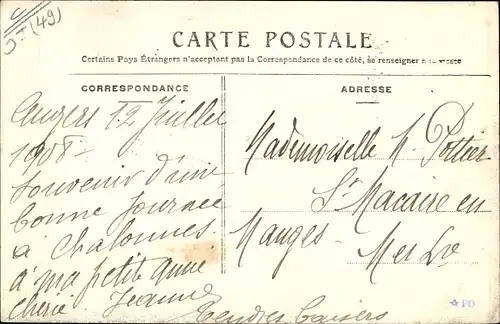 (49)
CARTE POSTALE
Certains Pays Étrangers n'acceptant pas la Correspondance de ce côté, se renseigner à la Poste
CORRESPONDANCE
Angers 12 Juillet
1908
Souvenir d'une
bonne journée
à Chalonnes
à ma petite amie
chérie Jeanne
Tendres baisers
ADRESSE
Mademoiselle M. Pottier
St Macaire en
Mauges
PD